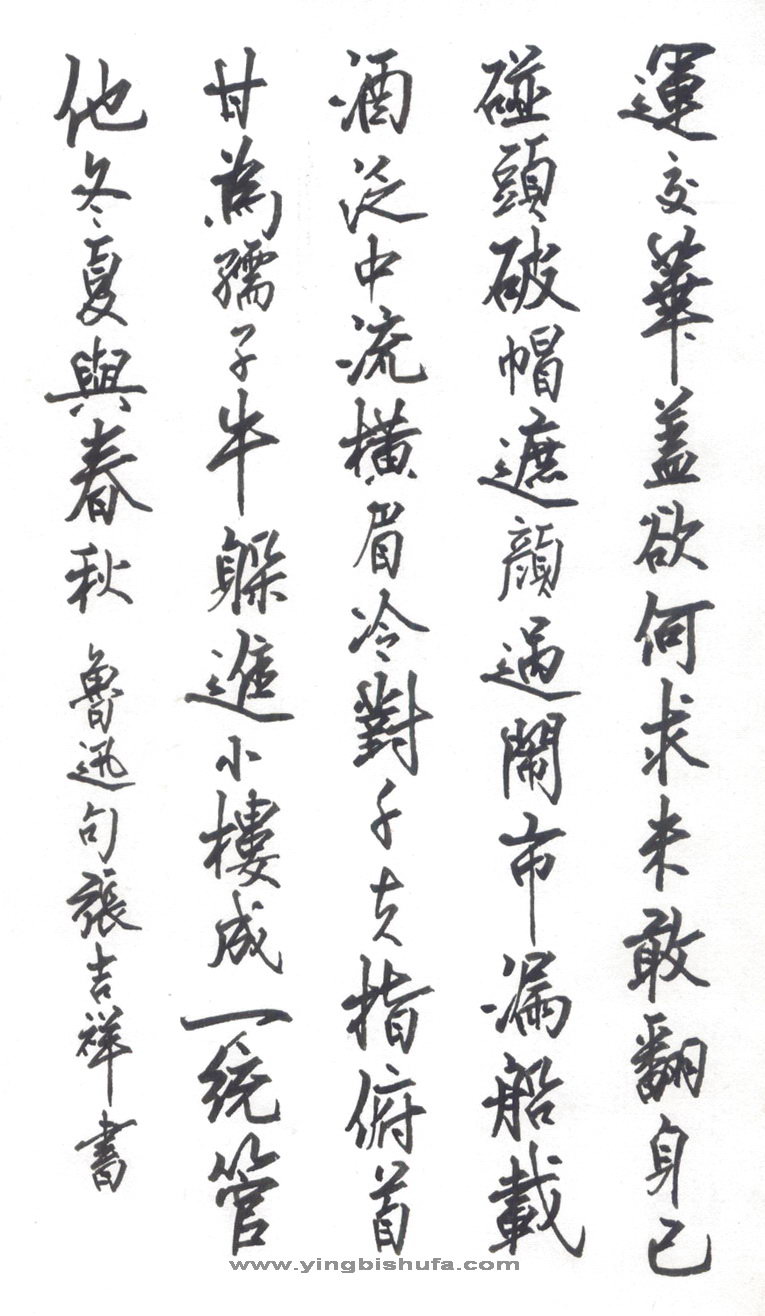 運交華盖欲何求未敢翻身已
碰頭破帽遮顏過鬧市漏船載
酒泛中流橫眉冷對千夫指俯首
甘為孺子牛躲進小樓成一統管
他冬夏與春秋 魯迅句張吉祥書
www.yingbishufa.com